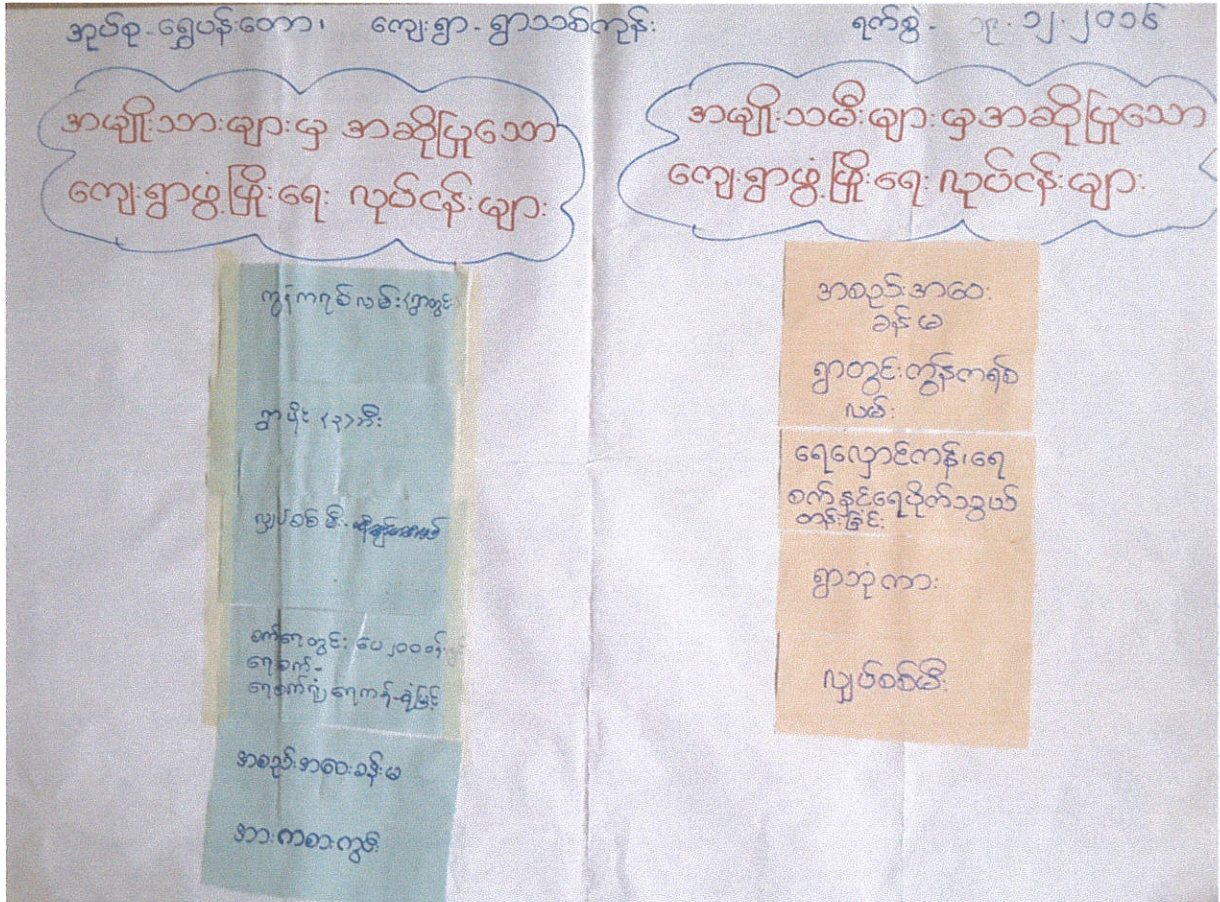 အုပ်စု-ရွှေပန်းတော၊ ကျေးရွာ-ရွာသစ်ကုန်း
ရက်စွဲ- ၁၉.၁၂.၂၀၁၆
အမျိုးသားများမှ အဆိုပြုသော
ကျေးရွာဖွံ့ဖြိုးရေး လုပ်ငန်းများ
ကွန်ကရစ်လမ်း(ရွာတွင်း
ရွာပိုင် (၃)
လျှပ်စစ်မီး-
စက်ရေတွင်း ပေ၂၀၀
ရေစက်-
ရေစက်ရုံ ရေကန်-ရုံမြင့်
အစည်းအဝေးခန်းမ
အားကစားကွင်း
အမျိုးသမီးများမှအဆိုပြုသော
ကျေးရွာဖွံ့ဖြိုးရေး လုပ်ငန်းများ
အစည်းအဝေး
ခန်းမ
ရွာတွင်းကွန်ကရစ်
လမ်း
ရေလှောင်ကန်၊ရေ
စက်နှင့်ရေပိုက်သွယ်
တန်းခြင်း
ရွာဘုံကား
လျှပ်စစ်မီး